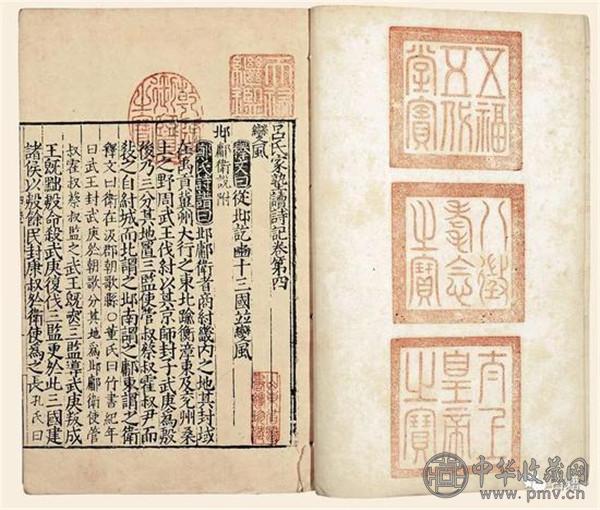 五福五代堂寶
八徵耄念之寶
太上皇帝之寶
天祿繼鑑
乾隆御覽之寶
呂氏家塾讀詩記卷第四
變風
釋文曰從邶訖豳十三國並變風
邶鄘衛說附
鄭氏詩譜曰邶鄘衛者商紂畿內之地其封域
在禹貢冀州大行之東北踰衡漳東及兗州桒
土之野周武王伐紂以其京師封子武庚為殷
後乃三分其地置三監使管叔蔡叔霍叔尹而
教之自紂城而北謂之邶南謂之鄘東謂之衛
釋文曰衛在汲郡朝歌縣○董氏曰竹書紀年
曰武王封武庚於朝歌分其地為邶鄘衛使管
叔霍叔蔡叔監之武王旣喪三監導武庚叛成
王旣黜殷命殺武庚復伐三監更於此三國建
諸侯以殷餘民封康叔於衛使為之長孔氏曰
中华收藏网
www.pmv.cn